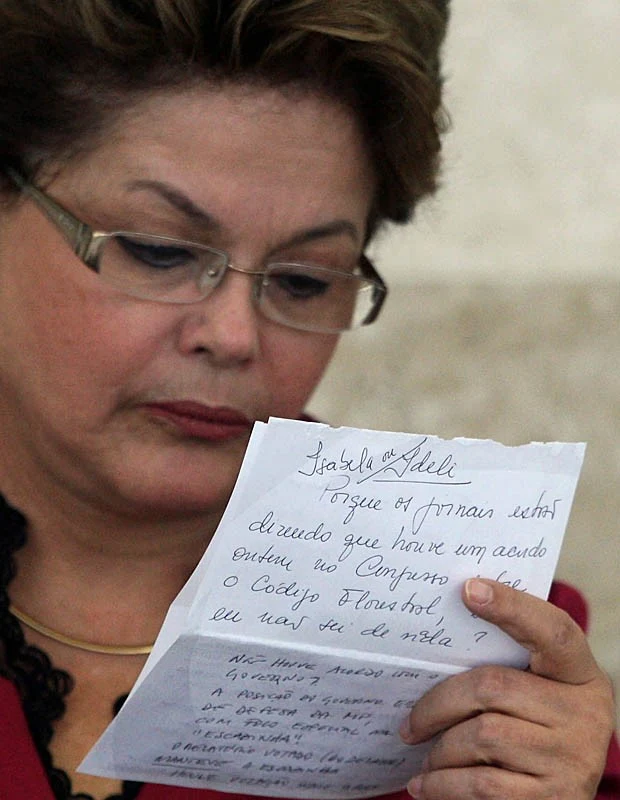 Isabela ou Ideli
Porque os jornais estão
dizendo que houve um acordo
ontem no Congresso sobre
o Código Florestal,
eu não sei de nada?
NÃO HOUVE ACORDO COM O
GOVERNO?
A POSIÇÃO DO GOVERNO ERA
DE DEFESA DA MP,
COM FOCO ESPECIAL NA
"ESCADINHA"
O RELATÓRIO VOTADO
MANTEVE A ESCADINHA
HOUVE